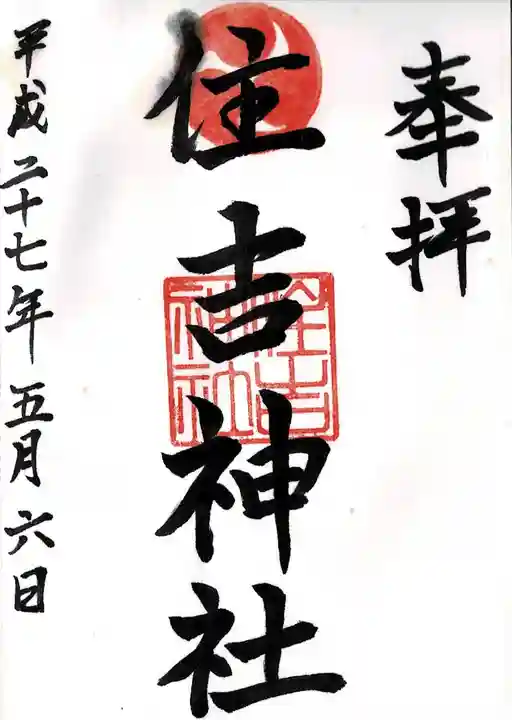 奉拝
住吉神社
住吉
神社
平成二十七年五月六日